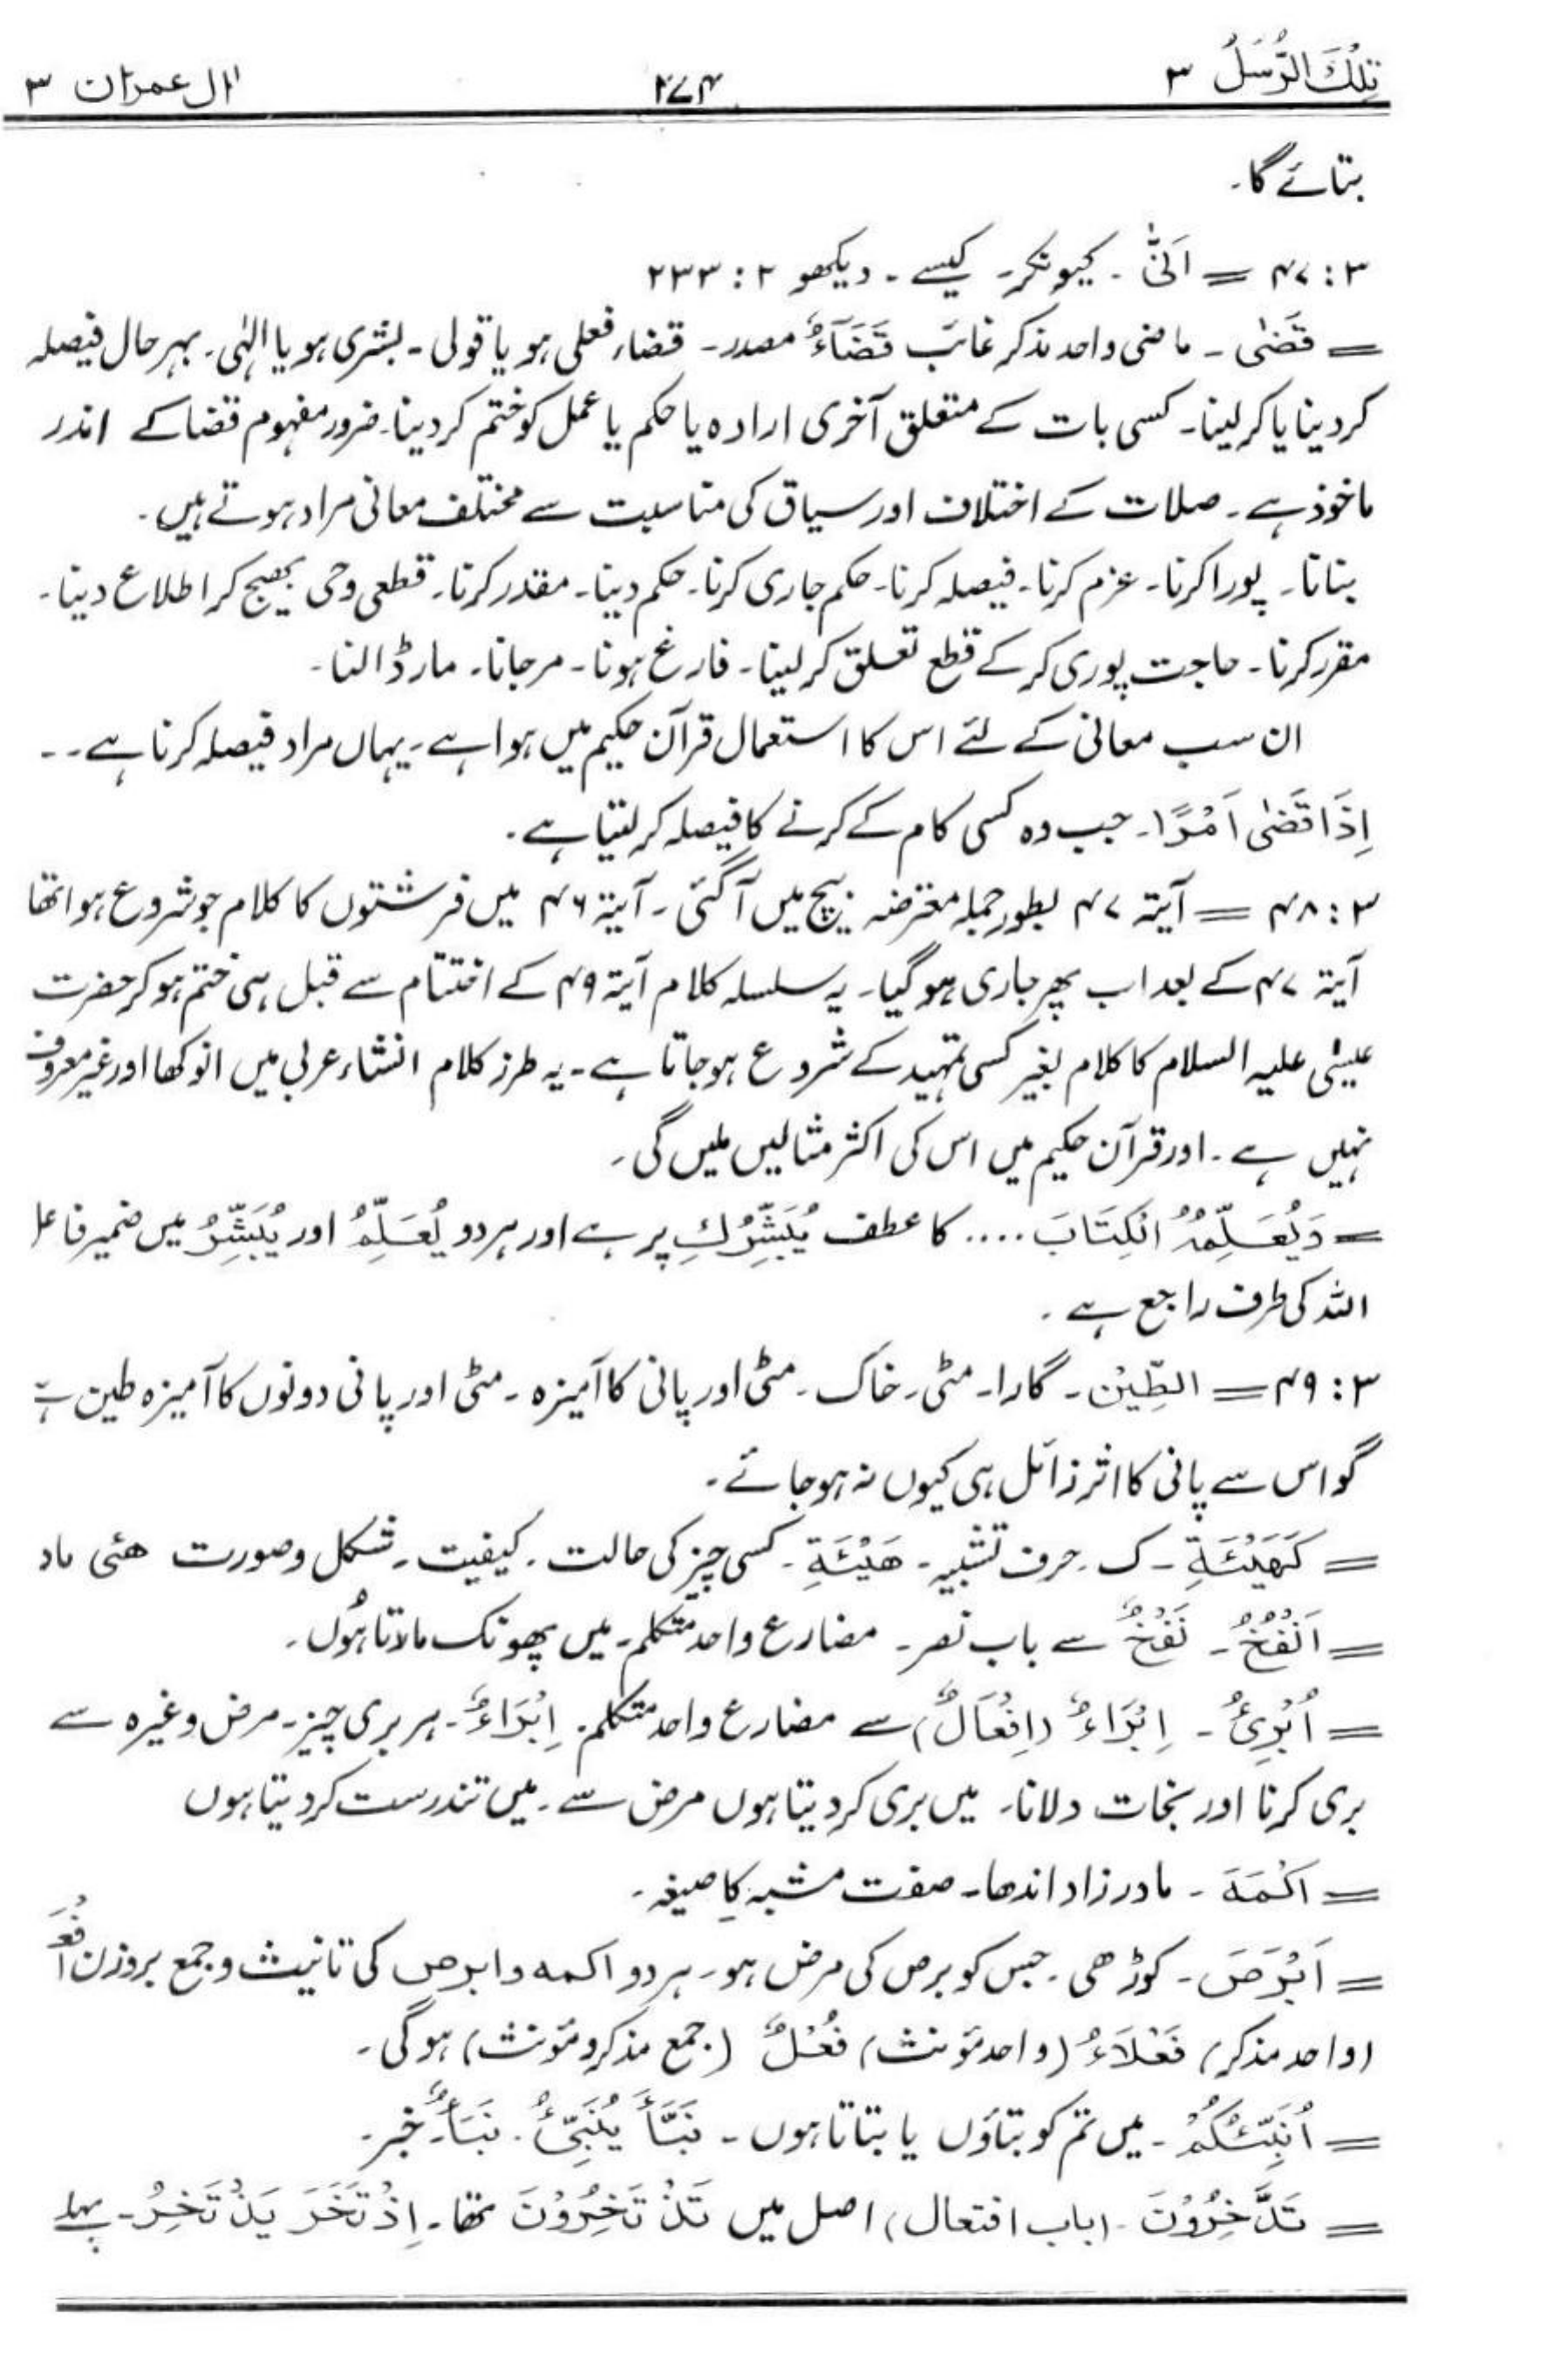 تِلْكَ الرُّسُلُ ٣ ٢٧٤ اٰل عمران ٣
بتائے گا۔
٣ : ٤٧ = اَنّٰی ۔ کیونکر۔ کیسے ۔ دیکھو ٢ : ٢٣٣
= قَضٰی ۔ ماضی واحد مذکر غائب قَضَآءٌ مصدر۔ قضاء فعلی ہو یا قولی ۔ بشری ہو یا الٰہی۔ بہر حال فیصلہ
کر دینا یا کر لینا۔ کسی بات کے متعلق آخری ارادہ یا حکم یا عمل کو ختم کر دینا۔ ضرور مفہوم قضا کے اندر
ماخوذ ہے ۔ صلات کے اختلاف اور سیاق کی مناسبت سے مختلف معانی مراد ہوتے ہیں ۔
بنانا۔ پورا کرنا۔ عزم کرنا۔ فیصلہ کرنا۔ حکم جاری کرنا۔ حکم دینا۔ مقدر کرنا۔ قطعی وحی بھیج کر اطلاع دینا۔
مقرر کرنا۔ حاجت پوری کر کے قطع تعلق کر لینا۔ فارغ ہونا۔ مر جانا۔ مار ڈالنا۔
ان سب معانی کے لئے اس کا استعمال قرآن حکیم میں ہوا ہے ۔ یہاں مراد فیصلہ کرنا ہے ۔۔
اِذَا قَضٰی اَمْرًا۔ جب وہ کسی کام کے کرنے کا فیصلہ کر لیتا ہے ۔
٣ : ٤٨ = آیتہ ٤٧ بطور جملہ معترضہ بیچ میں آگئی ۔ آیتہ ٤٦ میں فرشتوں کا کلام جو شروع ہوا تھا
آیتہ ٤٧ کے بعد اب پھر جاری ہو گیا۔ یہ سلسلہ کلام آیتہ ٤٩ کے اختتام سے قبل ہی ختم ہو کر حضرت
عیسٰی علیہ السلام کا کلام بغیر کسی تمہید کے شروع ہو جاتا ہے ۔ یہ طرز کلام انشاء عربی میں انوکھا اور غیر معروف
نہیں ہے ۔ اور قرآن حکیم میں اس کی اکثر مثالیں ملیں گی ۔
= وَیُعَلِّمُہُ الْکِتَابَ .... کا عطف یُبَشِّرُكِ پر ہے اور ہر دو یُعَلِّمُ اور یُبَشِّرُ میں ضمیر فاعل
اللہ کی طرف راجع ہے ۔
٣ : ٤٩ = الطِّیْنِ ۔ گارا۔ مٹی۔ خاک ۔ مٹی اور پانی کا آمیزہ ۔ مٹی اور پانی دونوں کا آمیزہ طین ہے
گو اس سے پانی کا اثر زائل ہی کیوں نہ ہو جائے ۔
= کَھَیْئَۃِ ۔ ک ۔ حرف تشبیہ ۔ ھَیْئَۃِ ۔ کسی چیز کی حالت ۔ کیفیت ۔ شکل و صورت ھئی مادہ
= اَنْفُخُ ۔ نَفْخٌ سے باب نصر ۔ مضارع واحد متکلم۔ میں پھونک مارتا ہوں ۔
= اُبْرِئُ ۔ اِبْرَاءٌ (اِفْعَالٌ) سے مضارع واحد متکلم۔ اِبْرَاءٌ ۔ ہر بری چیز۔ مرض وغیرہ سے
بری کرنا اور نجات دلانا۔ میں بری کر دیتا ہوں مرض سے ۔ میں تندرست کر دیتا ہوں
= اَکْمَہَ ۔ مادر زاد اندھا۔ صفت مشبہ کا صیغہ ۔
= اَبْرَصَ ۔ کوڑھی ۔ جس کو برص کی مرض ہو۔ ہر دو اکمہ و ابرص کی تانیث و جمع بروزن اَفْعَلُ
(واحد مذکر) فَعْلَاءُ (واحد مؤنث) فُعْلٌ (جمع مذکر و مؤنث) ہو گی ۔
= اُنَبِّئُکُمْ ۔ میں تم کو بتاؤں یا بتاتا ہوں ۔ نَبَّأَ یُنَبِّئُ ۔ نَبَأٌ ۔ خبر ۔
= تَدَّخِرُوْنَ ۔ (باب افتعال) اصل میں تَذْ تَخِرُوْنَ تھا۔ اِذْتَخَرَ یَذْتَخِرُ ۔ پہلے